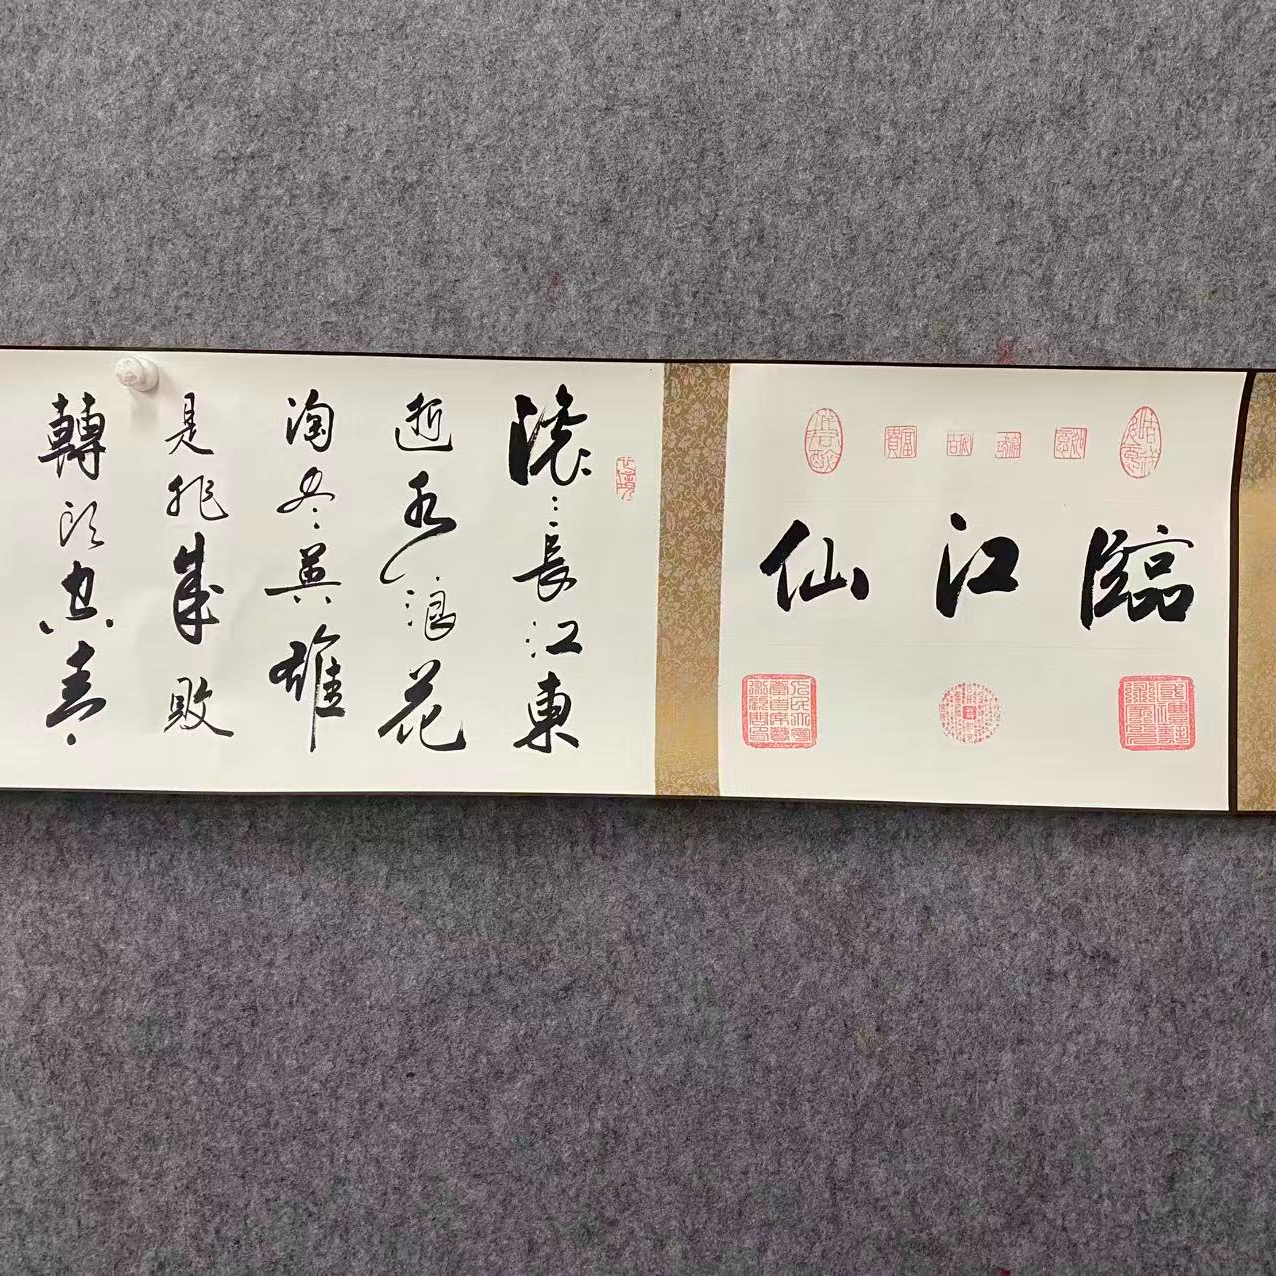 臨江仙
滾〻長江東
逝水浪花
淘盡英雄
是非成敗
轉頭空青〻